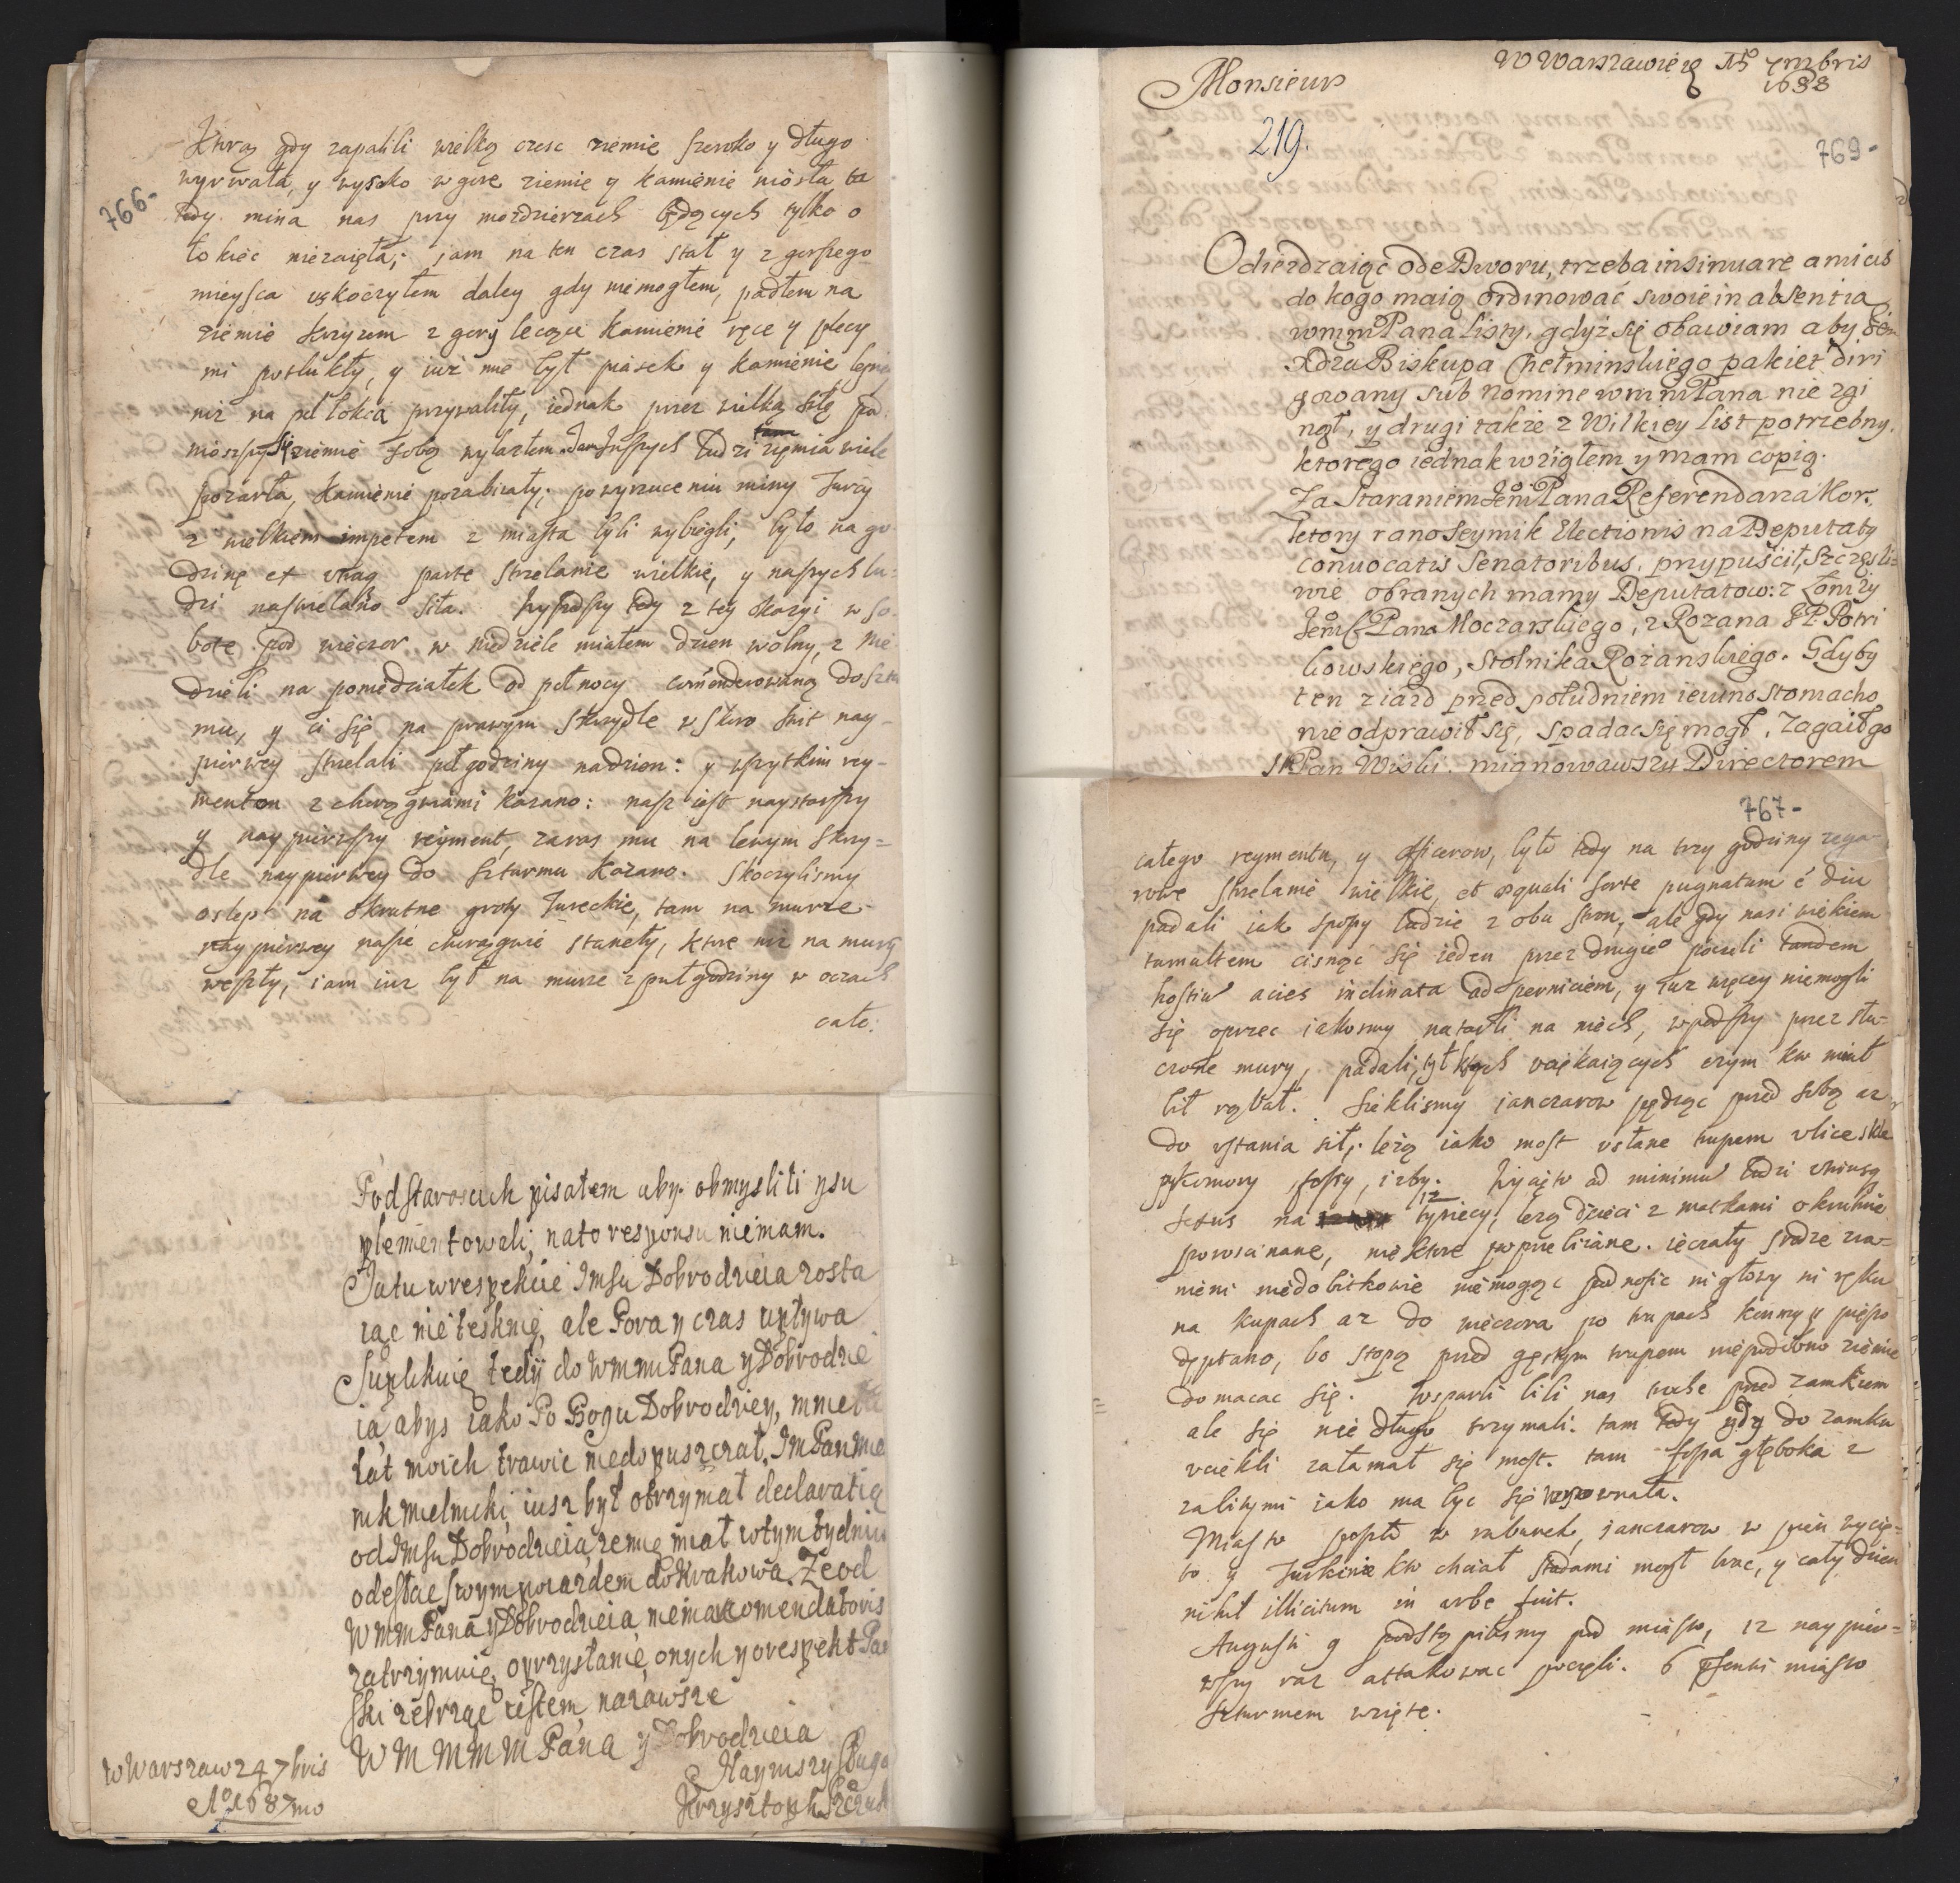 766-
Ktorą gdy zapalili wielką czesc ziemie szeroko y długo
wyrwała, y wysoko w gorę ziemię y kamienie niosła ta
tedy mina nas przy mozdzierzach będących tylko o
łokiec niezaięła; iam na ten czas stał y z gorszego
mieysca uskoczyłem daley gdy niemogłem, padłem na
ziemię krzyzem z gory lecące kamienie ręce y plecy
mi potlukły, y iuz mie był piasek y kamienie
niz na puł łokcia przywaliły, iednak przez wielką siłę
ziemię sobą wylazłem. Inszych ludzi ziemia wiele
pozarła, kamienie pozabiiały; po wyrzuceniu miny Turcy
z wielkiem impetem z miasta byli wybiegli, było na go
dzinę et utraq parte strzelanie wielkie, y naszych lu=
dzi nastrzelano siła. Zszedszy tedy z tey okazyi w so
botę pod wieczor w niedziele miałem dzien wolny, z nie
dzieli na poniedziałek od pełnocy comenderowaną do sztu
rmu, y ci się na prawym skrzydle skoro swit nay-
pierwey strzelali puł godziny nadzien: y wszytkim rey-
mentom z chorągwiami kazano: nasz iest naystarszy
y naypierwszy reyment, zaraz mu na lewym skrzy=
dle naypierwey do szturmu kazano. Skoczylismy
oslep na okrutne groty Tureckie, tam na murze
naypierwey nasze chorągwie stanęły, ktore niz na mury
weszły, iam iuz był na murze z puł godziny w oczach
cało:
Podstarosciech pisałem aby obmyslili y su
plementowali, nato responsu niemam.
Ja tu w respekcie Jmsu Dobrodzieia zosta
iąc nie tesknię, ale Pora y czas upływa
Suplikuię tedÿ do WmmPana y Dobrodzie
ia, abys iako Po Bogu Dobrodziey, mnie
lat moich trawic niedopuszczał. Im Pan
nik mielnicki iusz był otrzymał declaratią
od Jmsu Dobrodzieia, ze mię miał w tym tydniu
odesłac swym poiazdem do Krakowa. Ze od
WmmPana y Dobrodzieia niema comendatoris
zatrzymuię, o przysłanie onych y o respekt Pan
ski zebrząc iestem nazawsze
W M M M M Pana y Dobrodzieia
Nayniszy Sługa
Krzysztoph
w Warszaw 24 7bris
Aº 1687mo
W Warszawie 15 7mbris
1688
Monsieur
219.
769-
Odiezdzaiąc ode Dworu, trzeba insinuare amicis
do kogo maią ordinować swoie in absentia
wmmPana listy, gdyż się obawiam aby
Xdza Biskupa Chełminskiego pakiet diri
gowany sub nomine wmmPana nie zgi
nął, y drugi także z Wilkiey list potrzebny,
ktorego iednak wziąłem y mam copią.
Za Staraniem Jem Pana Referendarza Kor:
ktory rano Seymik Electionis na Deputaty
convocatis Senatoribus, przypuścił, szczęsli=
wie obranych mamy Deputatow: z Łomży
Jem Pana Moczarskiego, z Rozana JP. Potri
kowskiego, Stolnika Rożanskiego. Gdyby
ten ziazd przed południem ieiuno stomacho
nie odprawił się, spadac się mogł. Zagaił go
Pan Wiski, mianowawszy Directorem
767-
całego reymentu, y officerow, było tedy na trzy godziny zega=
rowe strzelanie wielkie, et aequali sorte pugnatum é diu
padali iak snopy ludzie z obu stron, ale gdy nasi wiekiem
tumultem cisnąc się ieden przez drugiego poczeli tandem
hostium acies inclinata ad perniciem, y iuz więcey niemogli
się oprzec iakosmy natarli na nich, wpadszy przez stłu=
czone mury, padali, uciekaiących czym kto miał
bił rąbał. Siekliśmy ianczarow pędząc przed sobą az
do ustania sił; lezą iako most usłane trupem ulice skle
py komory, fossy, izby. ad minimum ludzi
na 12 tysiecy, lezą dzieci z matkami okrutnie
porozcinane, niektore poprzebiiane. ieczały srodze ra=
nieni niedobitkowie niemogąc podnosic ni głowy ni ręku
na kupach az do wieczora po trupach konmy y pieszo
deptano, bo stopą przed gęstym trupem niepodobno ziemie
domacac się. Wsparli byli nas trochę przed zamkiem
ale się nie długo trzymali. tam tedy gdy do zamku
uciekli załamał się most. tam fossa głęboka z
zabitymi iako ma byc się wyrownała.
Miasto poszło w rabunek, ianczarow w pien wycię=
to y Turkinie kto chciał stadami mogł brac, y cały dzien
nihil illicitum in urbe fuit.
Augusti 9 podstąpiliśmy pod miasto, 12 naypier=
wszy raz attakowac poczęli. 6 miasto
szturmem wzięte.